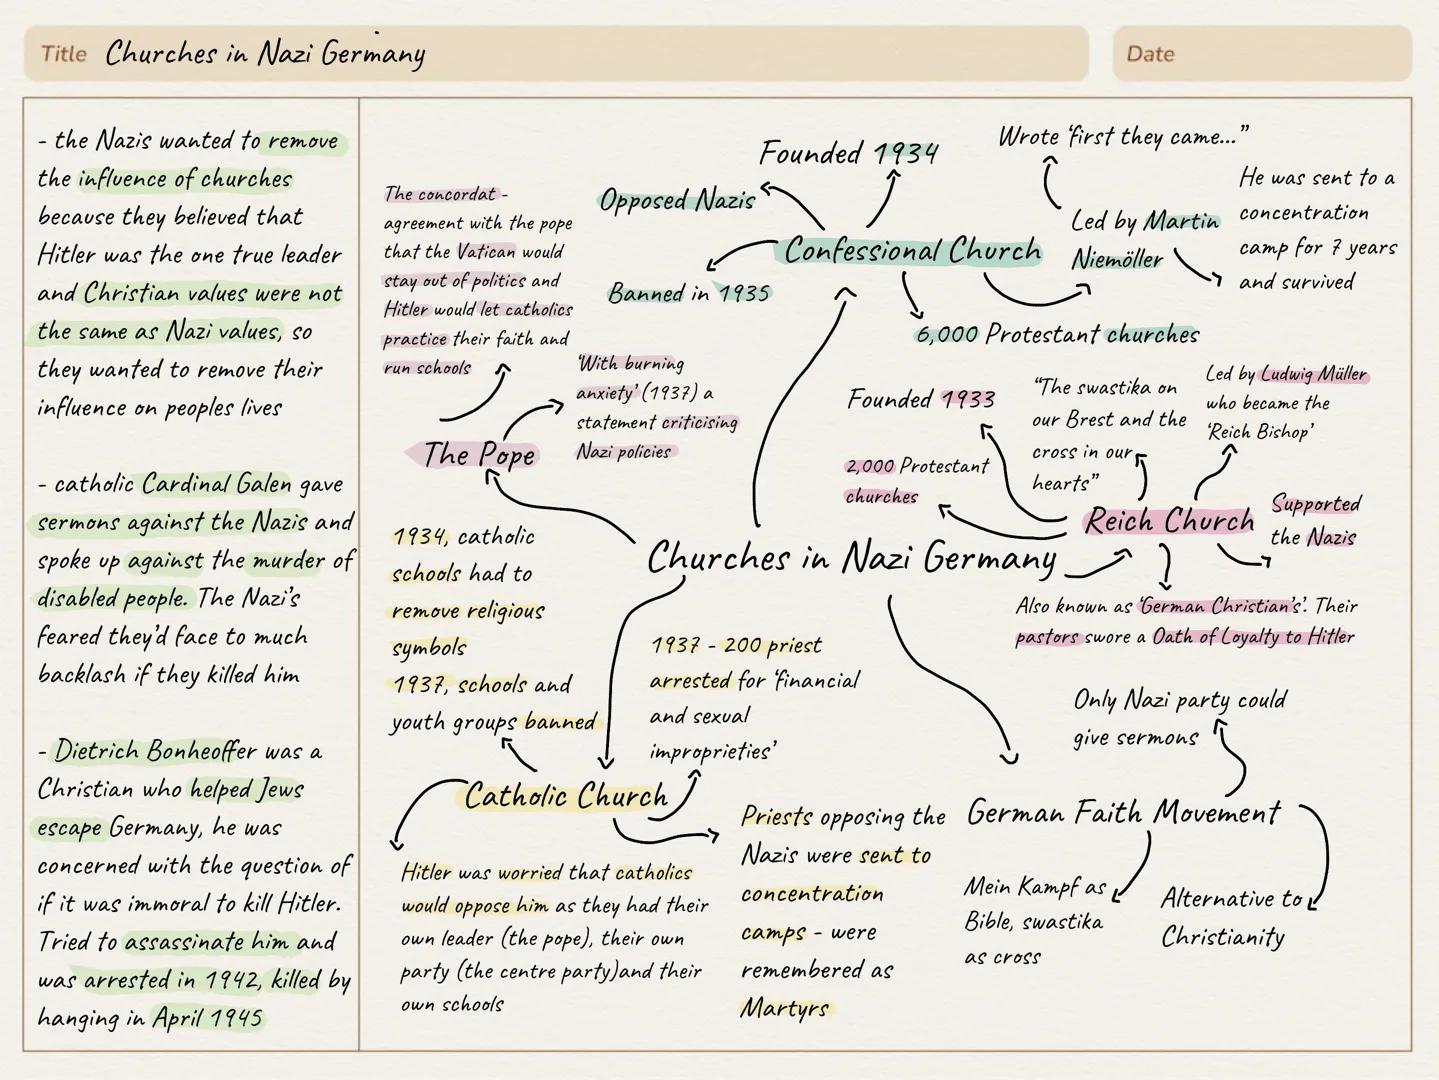 Title Churches in Nazi Germany
Date
- the Nazis wanted to remove
the influence of churches
because they believed that
Hitler was the one true leader
and Christian values were not
the same as Nazi values, so
they wanted to remove their
influence on peoples lives
- catholic Cardinal Galen gave
sermons against the Nazis and
spoke up against the murder of
disabled people. The Nazi's
feared they'd face to much
backlash if they killed him
- Dietrich Bonheoffer was a
Christian who helped Jews
escape Germany, he was
concerned with the question of
if it was immoral to kill Hitler.
Tried to assassinate him and
was arrested in 1942, killed by
hanging in April 1945
The concordat -
agreement with the pope
that the Vatican would
stay out of politics and
Hitler would let catholics
practice their faith and
run schools
'With burning
anxiety' (1937) a
statement criticising
Nazi policies
The Pope
Founded 1934
Opposed Nazis
Confessional Church
Banned in 1935
6,000 Protestant churches
Wrote 'first they came..."
Led by Martin
Niemöller
He was sent to a
concentration
camp for 7 years
and survived
Founded 1933
2,000 Protestant
churches
"The swastika on
our Brest and the
cross in our
hearts"
Led by Ludwig Müller
who became the
'Reich Bishop'
Reich Church
Supported
the Nazis
Also known as 'German Christian's'. Their
pastors swore a Oath of Loyalty to Hitler
Churches in Nazi Germany
1934, catholic
schools had to
remove religious
symbols
1937, schools and
youth groups banned
1937 - 200 priest
arrested for 'financial
and sexual
improprieties'
Catholic Church
Hitler was worried that catholics
would oppose him as they had their
own leader (the pope), their own
party (the centre party)and their
own schools
Priests opposing the
Nazis were sent to
concentration
camps - were
remembered as
Martyrs
Only Nazi party could
give sermons
German Faith Movement
Mein Kampf as
Bible, swastika
as cross
Alternative to
Christianity